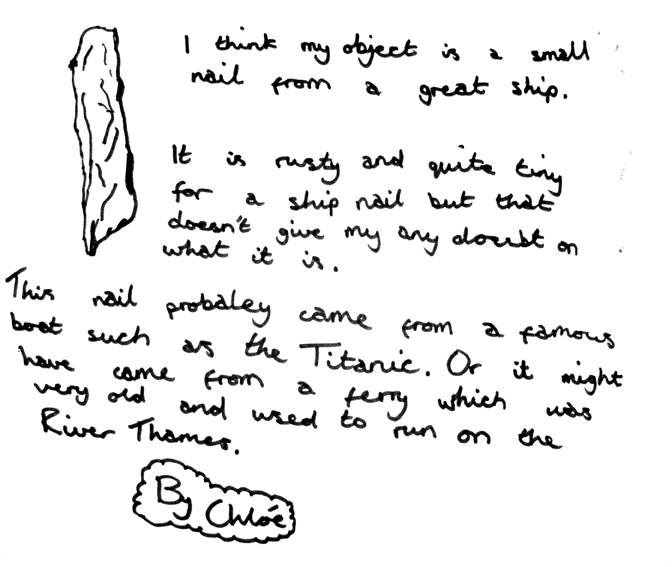 I think my object is a small
nail from a great ship.
It is rusty and quite tiny
for a ship nail but that
doesn't give my any doubt on
what it is.
This nail probaley came from a famous
boat such as the Titanic. Or it might
have came from a ferry which was
very old and used to run on the
River Thames.
By Chloé